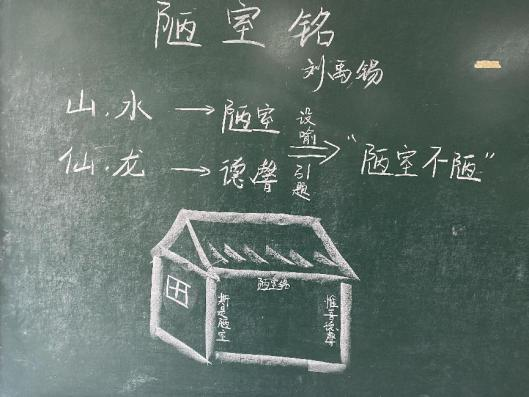 陋室铭
刘禹锡
山、水 → 陋室 设喻
仙、龙 → 德馨 引题
“陋室不陋”
陋室铭
斯是陋室
惟吾德馨